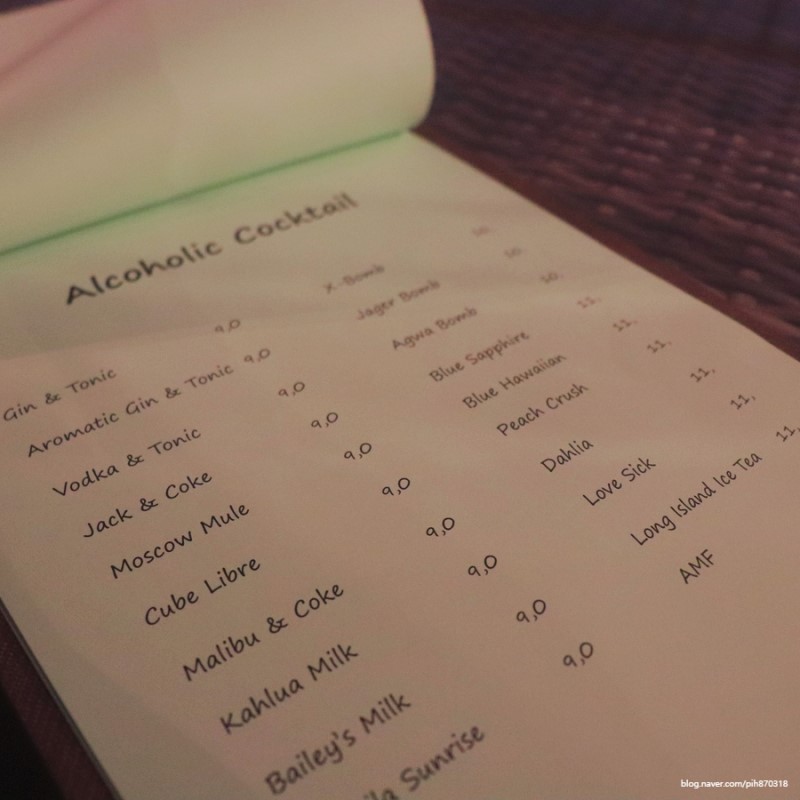 Alcoholic Cocktail
Gin & Tonic 9,0
Aromatic Gin & Tonic 9,0
Vodka & Tonic 9,0
Jack & Coke 9,0
Moscow Mule 9,0
Cube Libre 9,0
Malibu & Coke 9,0
Kahlua Milk 9,0
Bailey's Milk 9,0
Sunrise 9,0
X-Bomb 10.
Jager Bomb 10.
Agwa Bomb 10.
Blue Sapphire 11.
Blue Hawaiian 11.
Peach Crush 11.
Dahlia 11.
Love Sick 11.
Long Island Ice Tea 11,
AMF
blog.naver.com/pih870318